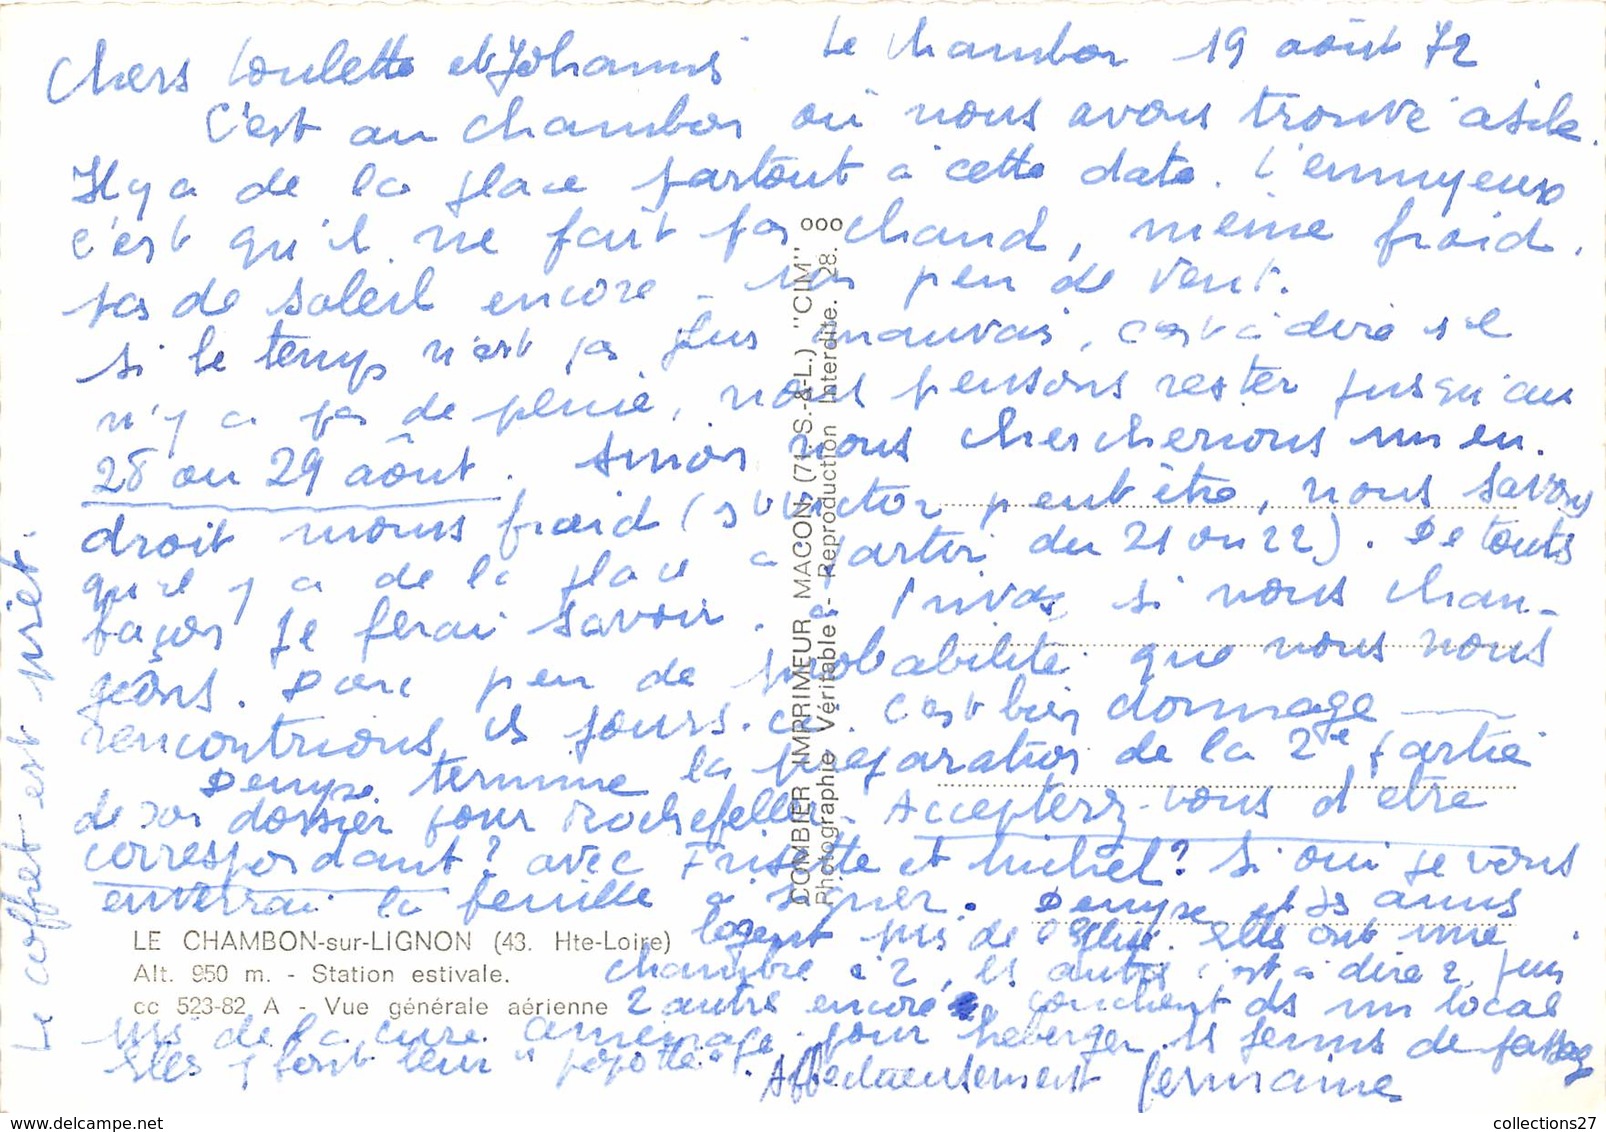 Le Chambon 19 août 72
Chers Loulette et Johannis
C'est au Chambon où nous avons trouvé asile.
Il y a de la place partout à cette date. L'ennuyeux
c'est qu'il ne fait pas chaud, même froid,
pas de soleil encore - un peu de vent.
Si le temps n'est pas plus mauvais, c'est à dire s'il
n'y a pas de pluie, nous pensons rester jusqu'au
28 ou 29 août. Sinon nous chercherions un en-
droit moins froid (St Victor peut être, nous savons
qu'il y a de la place à partir du 21 ou 22). De toute
façon je ferai savoir à Privas si nous chan-
geons. Donc peu de probabilité que nous nous
rencontrions ces jours-ci. C'est bien dommage
Denyse termine la préparation de la 2e partie
de son dossier pour Rochefeller. Accepterez-vous d'être
correspondant? avec Frisette et Michel? Si oui je vous
enverrai la feuille à signer. Denyse et ses amis
logent près de l'Eglise. Elles ont une
chambre à 2, les autres c'est à dire 2 puis
2 autres encore couchent ds un local
près de la cure aménagé pour héberger les jeunes de passage
Elles y font leur "popotte".
Affectueusement Germaine
Le coffret est prêt.
LE CHAMBON-sur-LIGNON (43. Hte-Loire)
Alt. 950 m. - Station estivale.
cc 523-82 A - Vue générale aérienne
COMBIER IMPRIMEUR MACON (71 S.-&-L.) "CIM"
Photographie Véritable - Reproduction Interdite. 28.
collections27